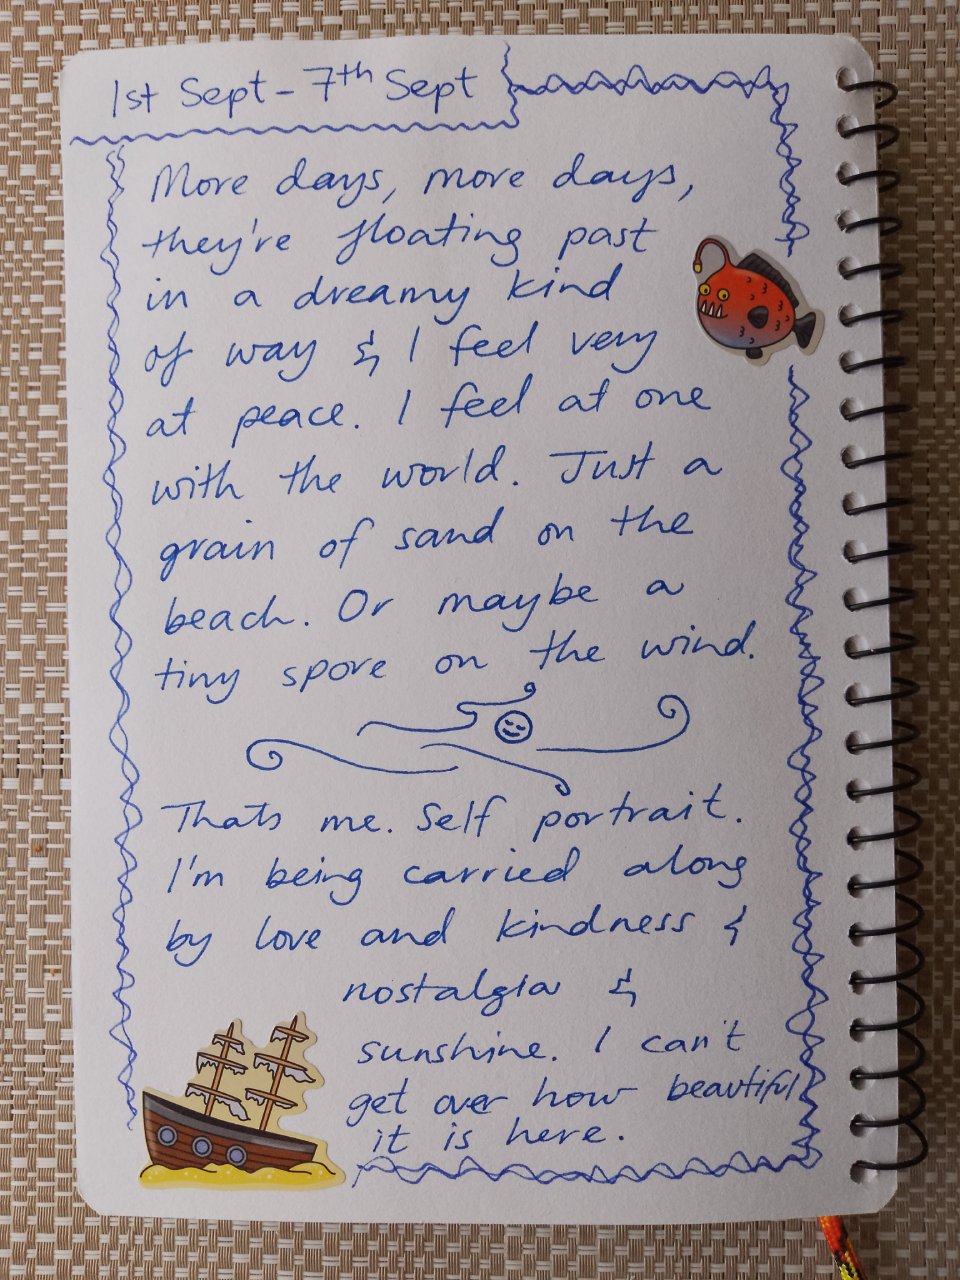 1st Sept - 7th Sept
More days, more days,
they're floating past
in a dreamy kind
of way & I feel very
at peace. I feel at one
with the world. Just a
grain of sand on the
beach. Or maybe a
tiny spore on the wind.
Thats me. Self portrait.
I'm being carried along
by love and kindness &
nostalgia &
sunshine. I can't
get over how beautiful
it is here.